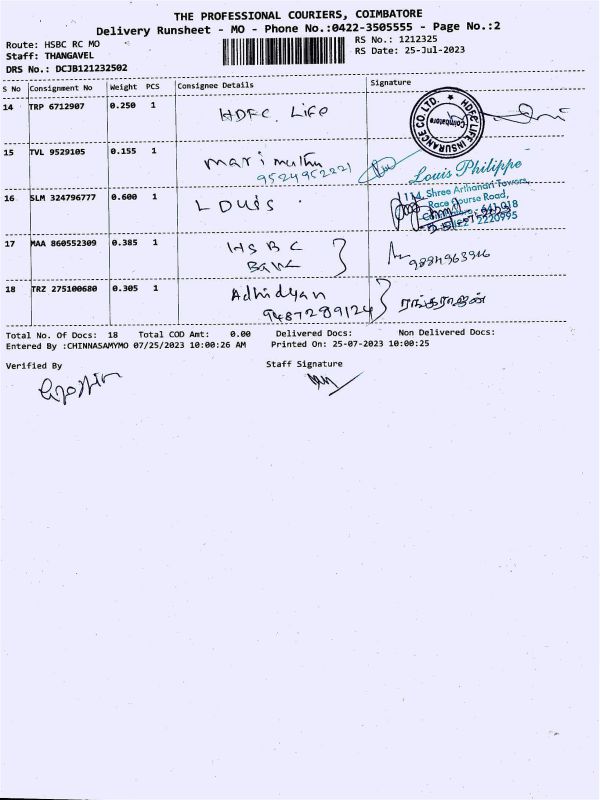 THE PROFESSIONAL COURIERS, COIMBATORE
Delivery Runsheet - MO - Phone No.:0422-3505555 - Page No.:2
Route: HSBC RC MO
RS No.: 1212325
Staff: THANGAVEL
RS Date: 25-Jul-2023
DRS No.: DCJB121232502
S No Consignment No Weight PCS Consignee Details Signature
14 TRP 6712907 0.250 1 HDFC Life
HDFC LIFE INSURANCE CO. LTD. Coimbatore
15 TVL 9529105 0.155 1 marimuthu
9524952221
Louis Philippe
16 SLM 324796777 0.600 1 Louis
114, Shree Arihandri Towers,
Race Course Road,
2220995
17 MAA 860552309 0.385 1 HSBC
Bank
9884963946
18 TRZ 275100680 0.305 1 Adhidyan
9487289124
ரங்கராஜன்
Total No. Of Docs: 18 Total COD Amt: 0.00 Delivered Docs: Non Delivered Docs:
Entered By :CHINNASAMYMO 07/25/2023 10:00:26 AM Printed On: 25-07-2023 10:00:25
Verified By Staff Signature